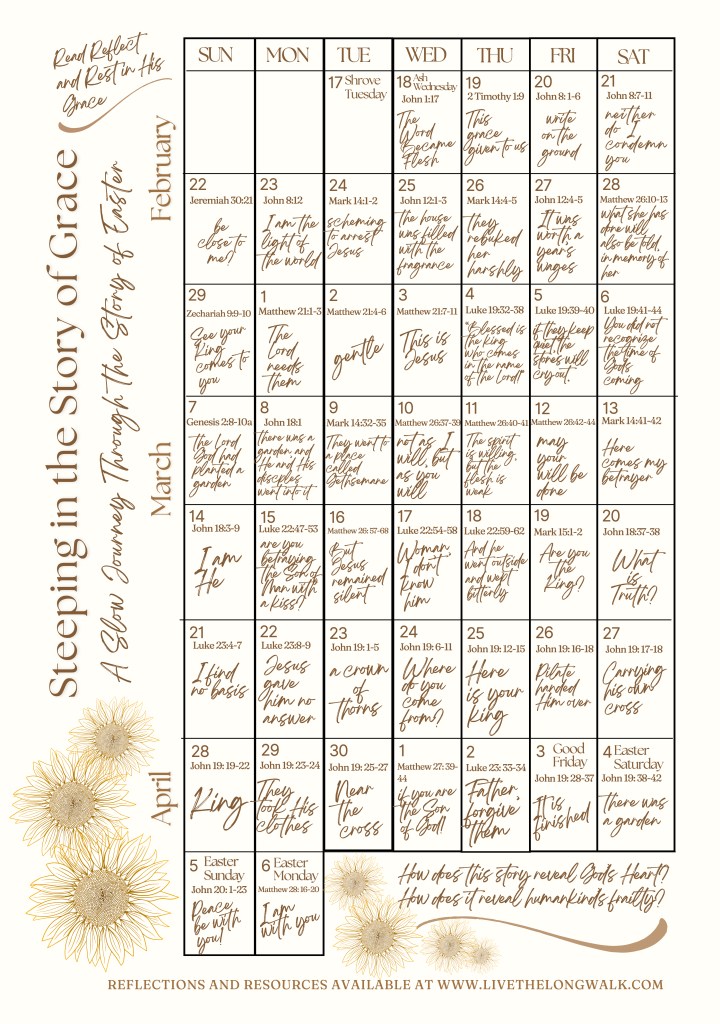 Read Reflect
and Rest in His
Grace
Steeping in the Story of Grace
A Slow Journey Through the Story of Easter
February
March
April
SUN MON TUE WED THU FRI SAT
17 Shrove
Tuesday
18 Ash
Wednesday
John 1:17
The
Word
Became
Flesh
19
2 Timothy 1:9
This
grace
given to us
20
John 8:1-6
write
on the
ground
21
John 8:7-11
neither
do I
condemn
you
22
Jeremiah 30:21
be
close to
me?
23
John 8:12
I am the
light of
the world
24
Mark 14:1-2
scheming
to arrest
Jesus
25
John 12:1-3
the house
was filled
with the
fragrance
26
Mark 14:4-5
they
rebuked
her
harshly
27
John 12:4-5
It was
worth a
year's
wages
28
Matthew 26:10-13
what she has
done will
also be told,
in memory of
her
29
Zechariah 9:9-10
See your
King
comes to
you
1
Matthew 21:1-3
The
Lord
needs
them
2
Matthew 21:4-6
gentle
3
Matthew 21:7-11
This is
Jesus
4
Luke 19:32-38
"Blessed is
the king
who comes
in the name
of the Lord!"
5
Luke 19:39-40
if they keep
quiet, the
stones will
cry out."
6
Luke 19:41-44
You did not
recognise
the time of
God's
coming
7
Genesis 2:8-10a
the Lord
God had
planted a
garden
8
John 18:1
there was a
garden, and
He and His
disciples
went into it
9
Mark 14:32-35
They went to
a place
called
Gethsemane
10
Matthew 26:37-39
not as I
will, but
as you
will
11
Matthew 26:40-41
The spirit
is willing,
but the
flesh is
weak
12
Matthew 26:42-44
may
your
will be
done
13
Mark 14:41-42
Here
comes my
betrayer
14
John 18:3-9
I am
He
15
Luke 22:47-53
are you
betraying
the Son of
Man with
a kiss?
16
Matthew 26: 57-68
But
Jesus
remained
silent
17
Luke 22:54-58
Woman,
I don't
know
him
18
Luke 22:59-62
And he
went outside
and wept
bitterly
19
Mark 15:1-2
Are you
the
King?
20
John 18:37-38
What
is
Truth?
21
Luke 23:4-7
I find
no basis
22
Luke 23:8-9
Jesus
gave
him no
answer
23
John 19:1-5
a crown
of
thorns
24
John 19:6-11
Where
do you
come
from?
25
John 19:12-15
Here
is your
king
26
John 19:16-18
Pilate
handed
Him over
27
John 19:17-18
Carrying
his own
cross
28
John 19:19-22
King
29
John 19:23-24
They
took His
clothes
30
John 19:25-27
Near
the
cross
1
Matthew 27:39-
44
if you are
the Son
of God!
2
Luke 23:33-34
Father,
forgive
them
3 Good
Friday
John 19:28-37
It is
finished
4 Easter
Saturday
John 19:38-42
there was
a garden
5 Easter
Sunday
John 20:1-23
Peace
be with
you!
6 Easter
Monday
Matthew 28:16-20
I am
with you
How does this story reveal God's Heart?
How does it reveal humankind's frailty?
REFLECTIONS AND RESOURCES AVAILABLE AT WWW.LIVETHELONGWALK.COM